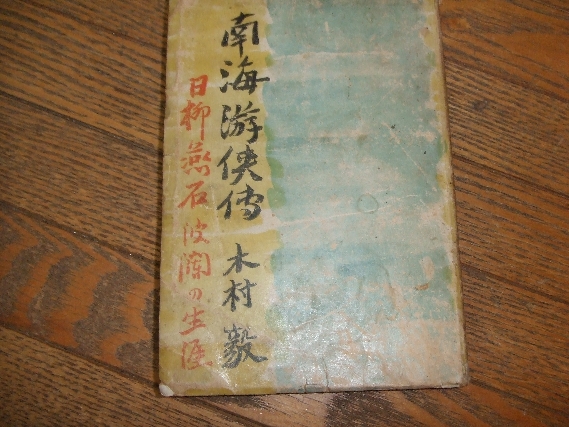 南海游侠傳 木村毅
日柳燕石波瀾の生涯